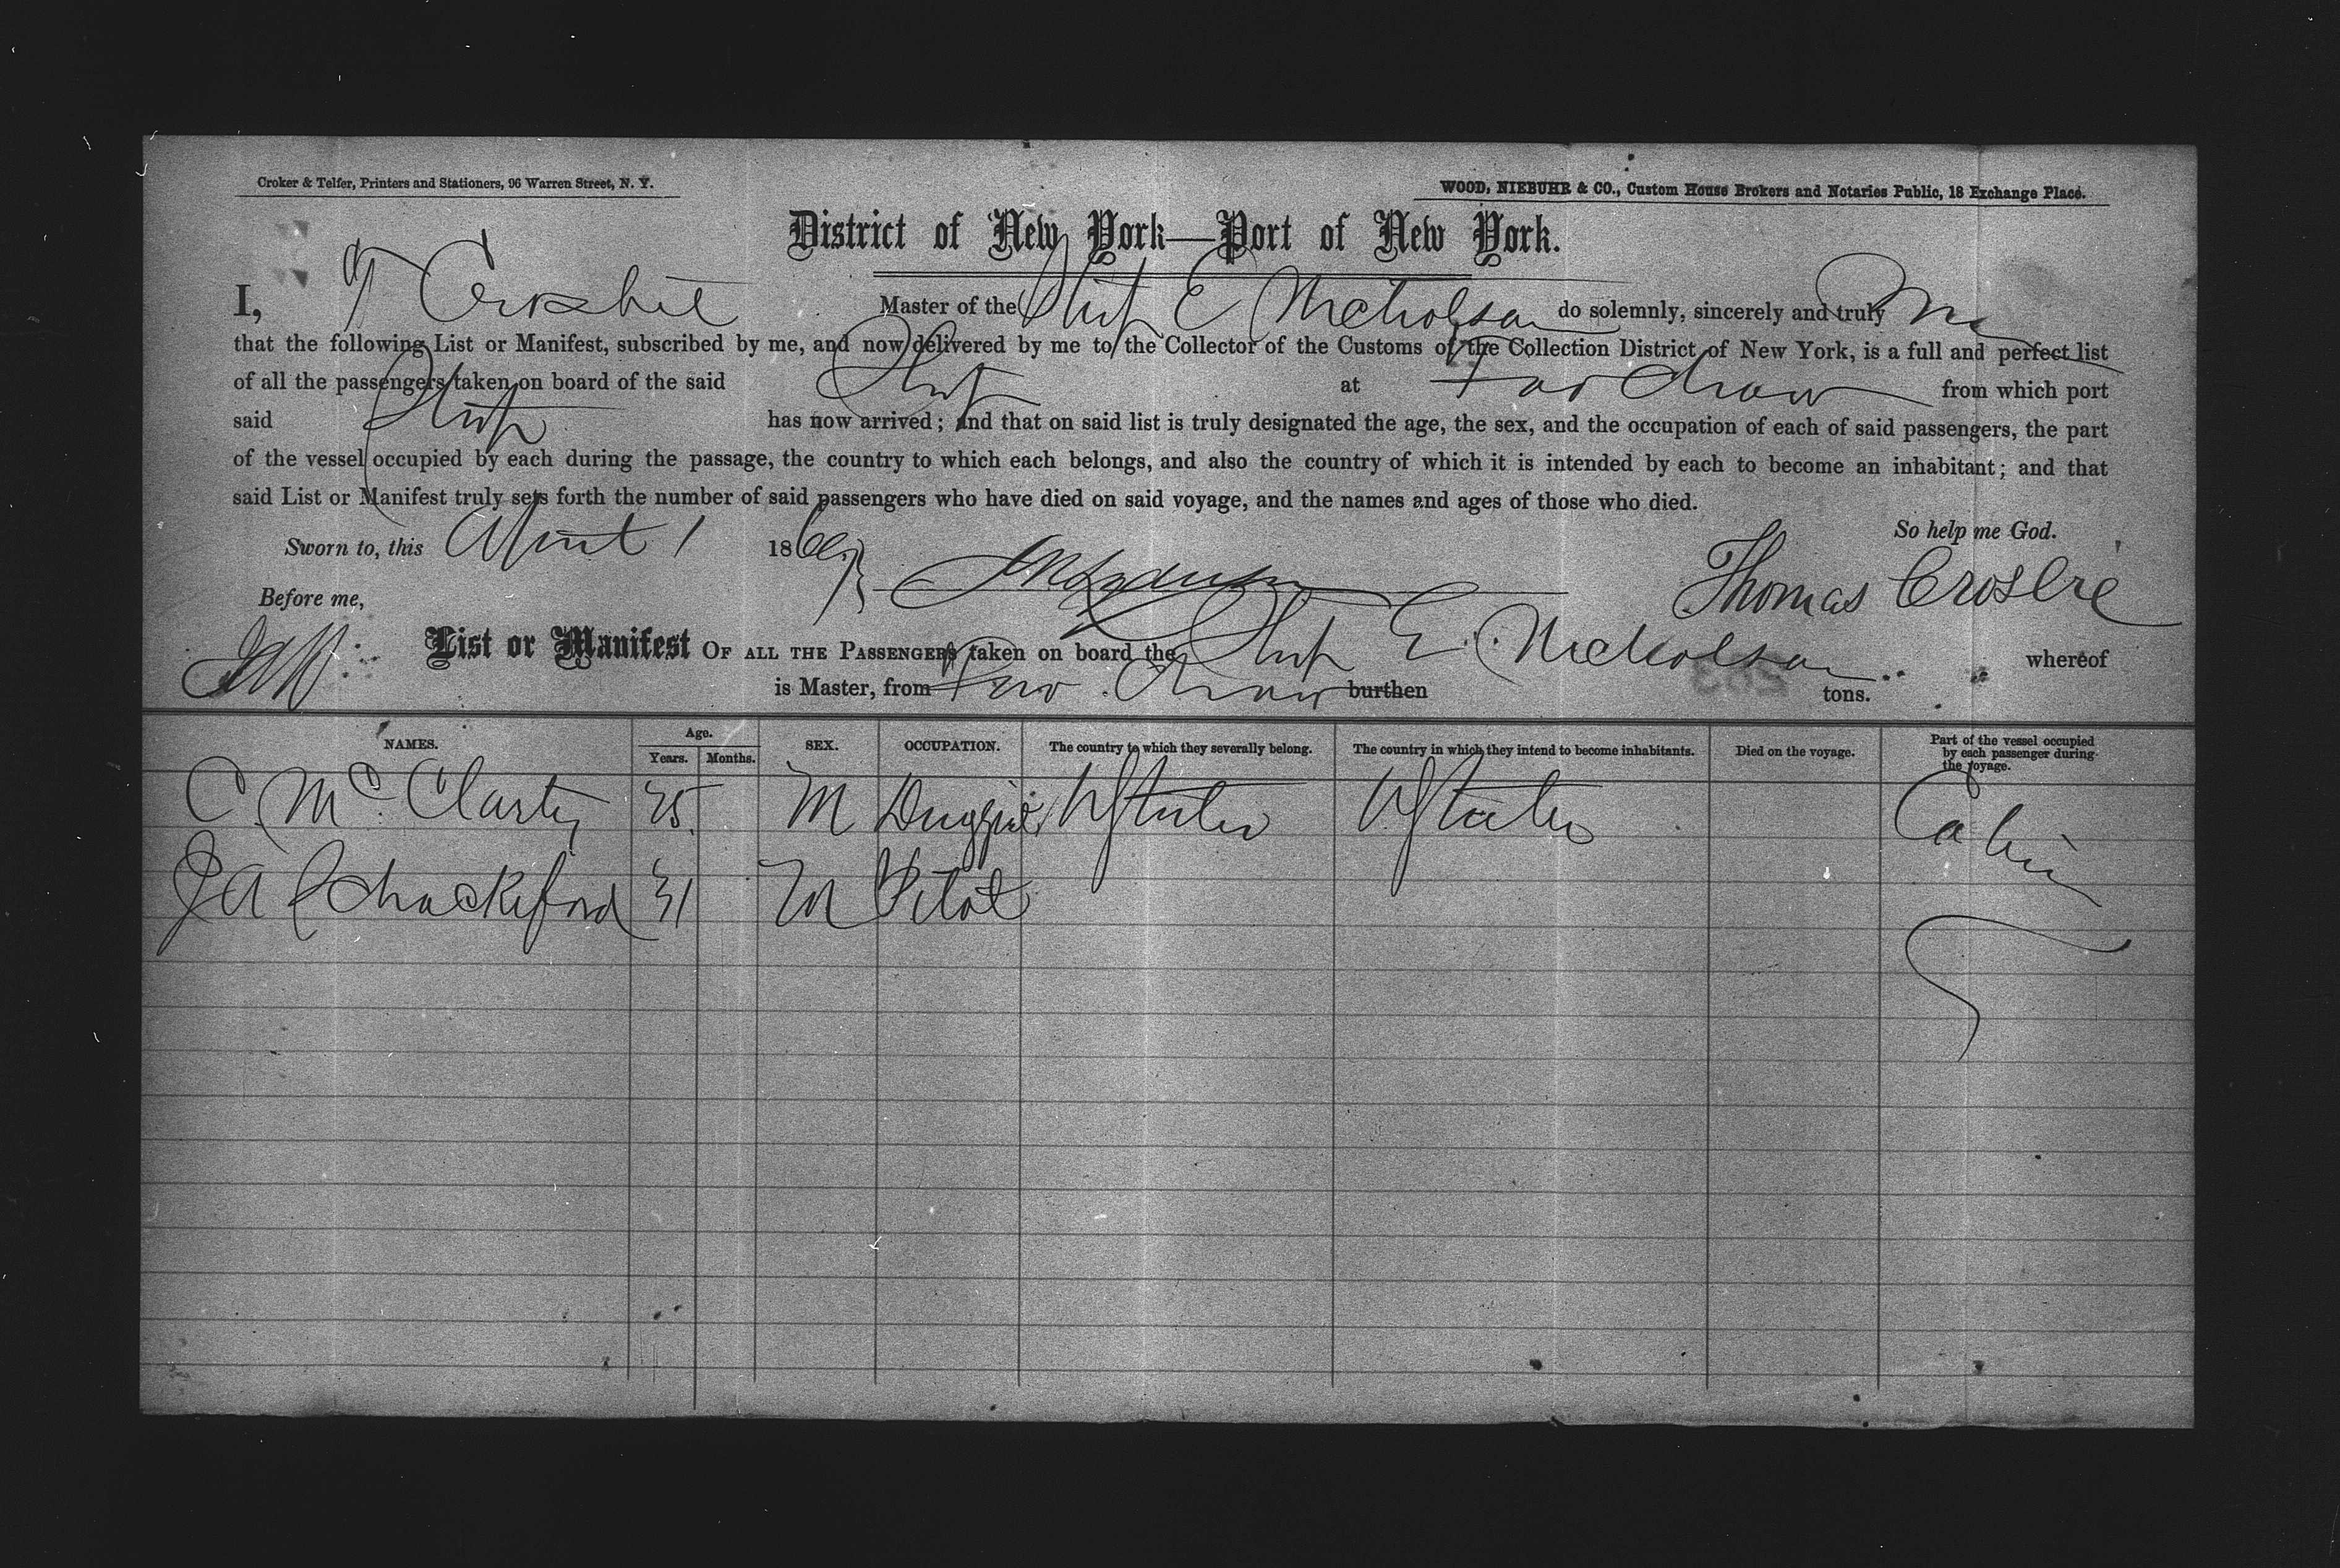 Croker & Telfer, Printers and Stationers, 96 Warren Street, N. Y.
WOOD, NIEBUHR & CO., Custom House Brokers and Notaries Public, 18 Exchange Place.
District of New York—Port of New York.
I, T Crosbie Master of the Ship E Nicholson do solemnly, sincerely and truly
that the following List or Manifest, subscribed by me, and now delivered by me to the Collector of the Customs of the Collection District of New York, is a full and perfect list
of all the passengers taken on board of the said Ship at from which port
said Ship has now arrived; and that on said list is truly designated the age, the sex, and the occupation of each of said passengers, the part
of the vessel occupied by each during the passage, the country to which each belongs, and also the country of which it is intended by each to become an inhabitant; and that
said List or Manifest truly sets forth the number of said passengers who have died on said voyage, and the names and ages of those who died.
So help me God.
Sworn to, this April 1 1869
Thomas Crosbie
Before me,
List or Manifest OF ALL THE PASSENGERS taken on board the Ship E. Nicholson whereof
is Master, from burthen tons.
NAMES. Age. Years. Months. SEX. OCCUPATION. The country to which they severally belong. The country in which they intend to become inhabitants. Died on the voyage. Part of the vessel occupied by each passenger during the voyage.
C. Mc Clarty 35 M U States U States Cabin
J A Schackford 31 M Pilot